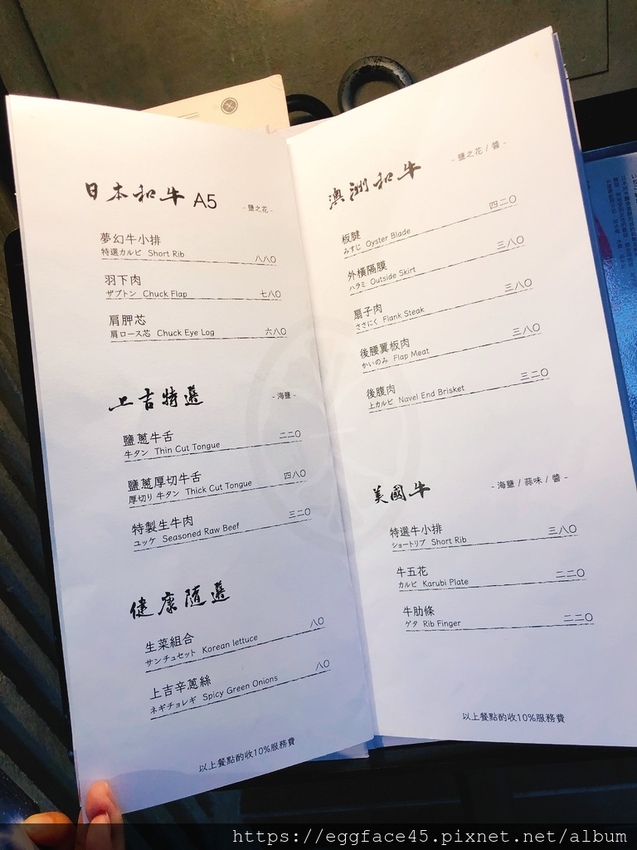 日本和牛 A5 - 鹽之花 -
夢幻牛小排
特選カルビ Short Rib 八八〇
羽下肉
ザブトン Chuck Flap 七八〇
肩胛芯
肩ロース芯 Chuck Eye Log 六八〇
上吉特選 - 海鹽 -
鹽蔥牛舌
牛タン Thin Cut Tongue 二二〇
鹽蔥厚切牛舌
厚切り牛タン Thick Cut Tongue 四八〇
特製生牛肉
ユッケ Seasoned Raw Beef 三二〇
健康隨選
生菜組合
サンチュセット Korean lettuce 八〇
上吉辛蔥絲
ネギチョレギ Spicy Green Onions 八〇
以上餐點酌收10%服務費
澳洲和牛 - 鹽之花 / 醬 -
板腱
みすじ Oyster Blade 四二〇
外橫隔膜
ハラミ Outside Skirt 三八〇
扇子肉
ささにく Flank Steak 三八〇
後腰翼板肉
かいのみ Flap Meat 三八〇
後腹肉
上カルビ Navel End Brisket 三二〇
美國牛 - 海鹽 / 蒜味 / 醬 -
特選牛小排
ショートリブ Short Rib 三八〇
牛五花
カルビ Karubi Plate 二二〇
牛肋條
ゲタ Rib Finger 二二〇
以上餐點酌收10%服務費
https://eggface45.pixnet.net/album